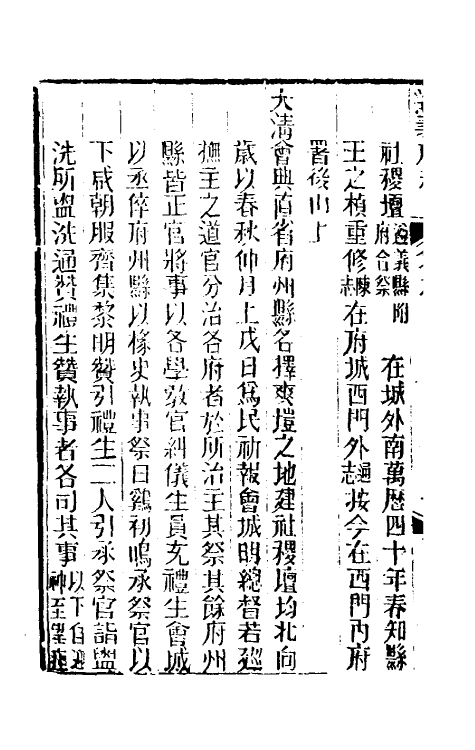 社稷壇遵義縣附府合祭　在城外南萬曆四十年春知縣
王之楨重修陳志在府城西門外通志按今在西門內府
署後山上
大清會典直省府州縣各擇爽塏之地建社稷壇均北向
歲以春秋仲月上戊日為民祈報會城明總督若巡
撫主之道官分治各府者於所治主其祭其餘府州
縣皆正官將事以各學教官糾儀生員充禮生會城
以丞倅府州縣以椽史執事祭日鷄初鳴承祭官以
下咸朝服齊集黎明贊引禮生二人引承祭官詣盥
洗所盥洗通贊禮生贊執事者各司其事以下自迎神至